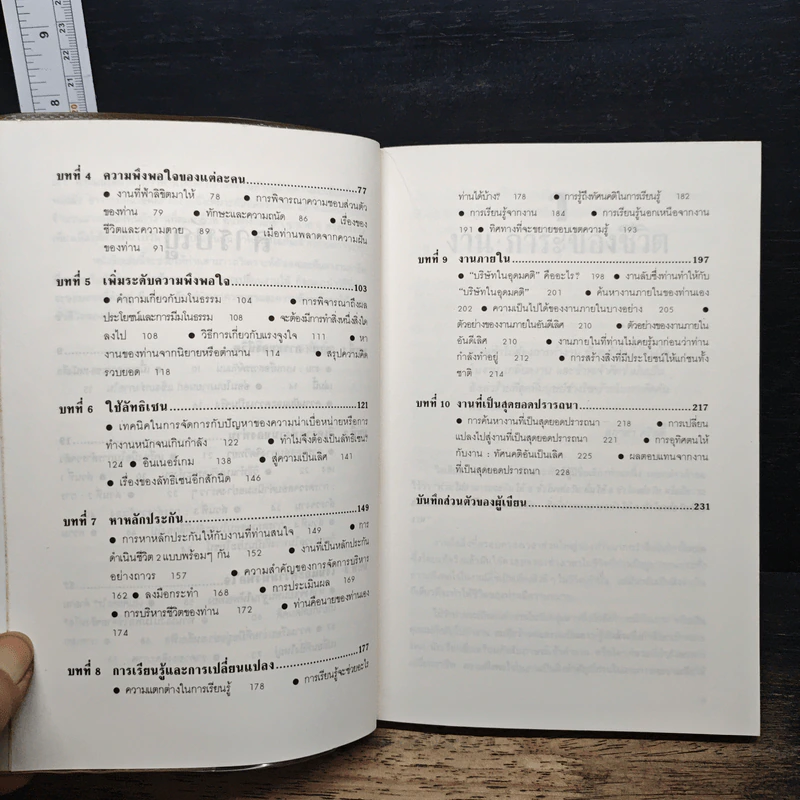 บทที่ 4 ความพึงพอใจของแต่ละคน 77
● งานที่ฟ้าลิขิตมาให้ 78 ● การพิจารณาความชอบส่วนตัว
ของท่าน 79 ● ทักษะและความถนัด 86 ● เรื่องของ
ชีวิตและความตาย 89 ● เมื่อท่านพลาดจากความฝัน
ของท่าน 91
บทที่ 5 เพิ่มระดับความพึงพอใจ 103
● คำถามเกี่ยวกับมโนธรรม 104 ● การพิจารณาถึงผล
ประโยชน์และการมีมโนธรรม 108 ● จะต้องมีการทำสิ่งหนึ่งสิ่งใด
ลงไป 108 ● วิธีการเกี่ยวกับแรงจูงใจ 111 ● หา
งานของท่านจากนิยายหรือตำนาน 114 ● สรุปความคิด
รวบยอด 118
บทที่ 6 ใช้ลัทธิเซน 121
● เทคนิคในการจัดการกับปัญหาของความน่าเบื่อหน่ายหรือการ
ทำงานหนักจนเกินกำลัง 122 ● ทำไมจึงต้องเป็นลัทธิเซน?
124 ● อินเนอร์เกม 138 ● สู่ความเป็นเลิศ 141
● เรื่องของลัทธิเซนอีกสักนิด 146
บทที่ 7 หาหลักประกัน 149
● การหาหลักประกันให้กับงานที่ท่านสนใจ 149 ● การ
ดำเนินชีวิต 2 แบบพร้อมๆ กัน 152 ● งานที่เป็นหลักประกัน
อย่างถาวร 157 ● ความสำคัญของการจัดการบริหาร
162 ● ลงมือกระทำ 168 ● การประเมินผล 169
● การบริหารชีวิตของท่าน 172 ● ท่านคือนายของท่านเอง
174
บทที่ 8 การเรียนรู้และการเปลี่ยนแปลง 177
● ความแตกต่างในการเรียนรู้ 178 ● การเรียนรู้จะช่วยอะไร
ท่านได้บ้าง? 178 ● การรู้ถึงทัศนคติในการเรียนรู้ 182
● การเรียนรู้จากงาน 184 ● การเรียนรู้นอกเหนือจากงาน
191 ● ทิศทางที่จะขยายขอบเขตความรู้ 193
บทที่ 9 งานภายใน 197
● “บริษัทในอุดมคติ” คืออะไร? 198 ● งานลับซึ่งท่านทำให้กับ
“บริษัทในอุดมคติ” 201 ● ค้นหางานภายในของท่านเอง
202 ● ความเป็นไปได้ของงานภายในบางอย่าง 205 ●
ตัวอย่างของงานภายในอันดีเลิศ 210 ● ตัวอย่างของงานภายใน
อันดีเลิศ 210 ● งานภายในที่ท่านไม่เคยรู้มาก่อนว่าท่าน
กำลังทำอยู่ 212 ● การสร้างสิ่งที่มีประโยชน์ให้แก่ชนทั้ง
ชาติ 214
บทที่ 10 งานที่เป็นสุดยอดปรารถนา 217
● การค้นหางานที่เป็นสุดยอดปรารถนา 218 ● การเปลี่ยน
แปลงไปสู่งานที่เป็นสุดยอดปรารถนา 221 ● การอุทิศตนให้
กับงาน : ทัศนคติอันเป็นเลิศ 225 ● ผลตอบแทนจากงาน
ที่เป็นสุดยอดปรารถนา 228
บันทึกส่วนตัวของผู้เขียน 231